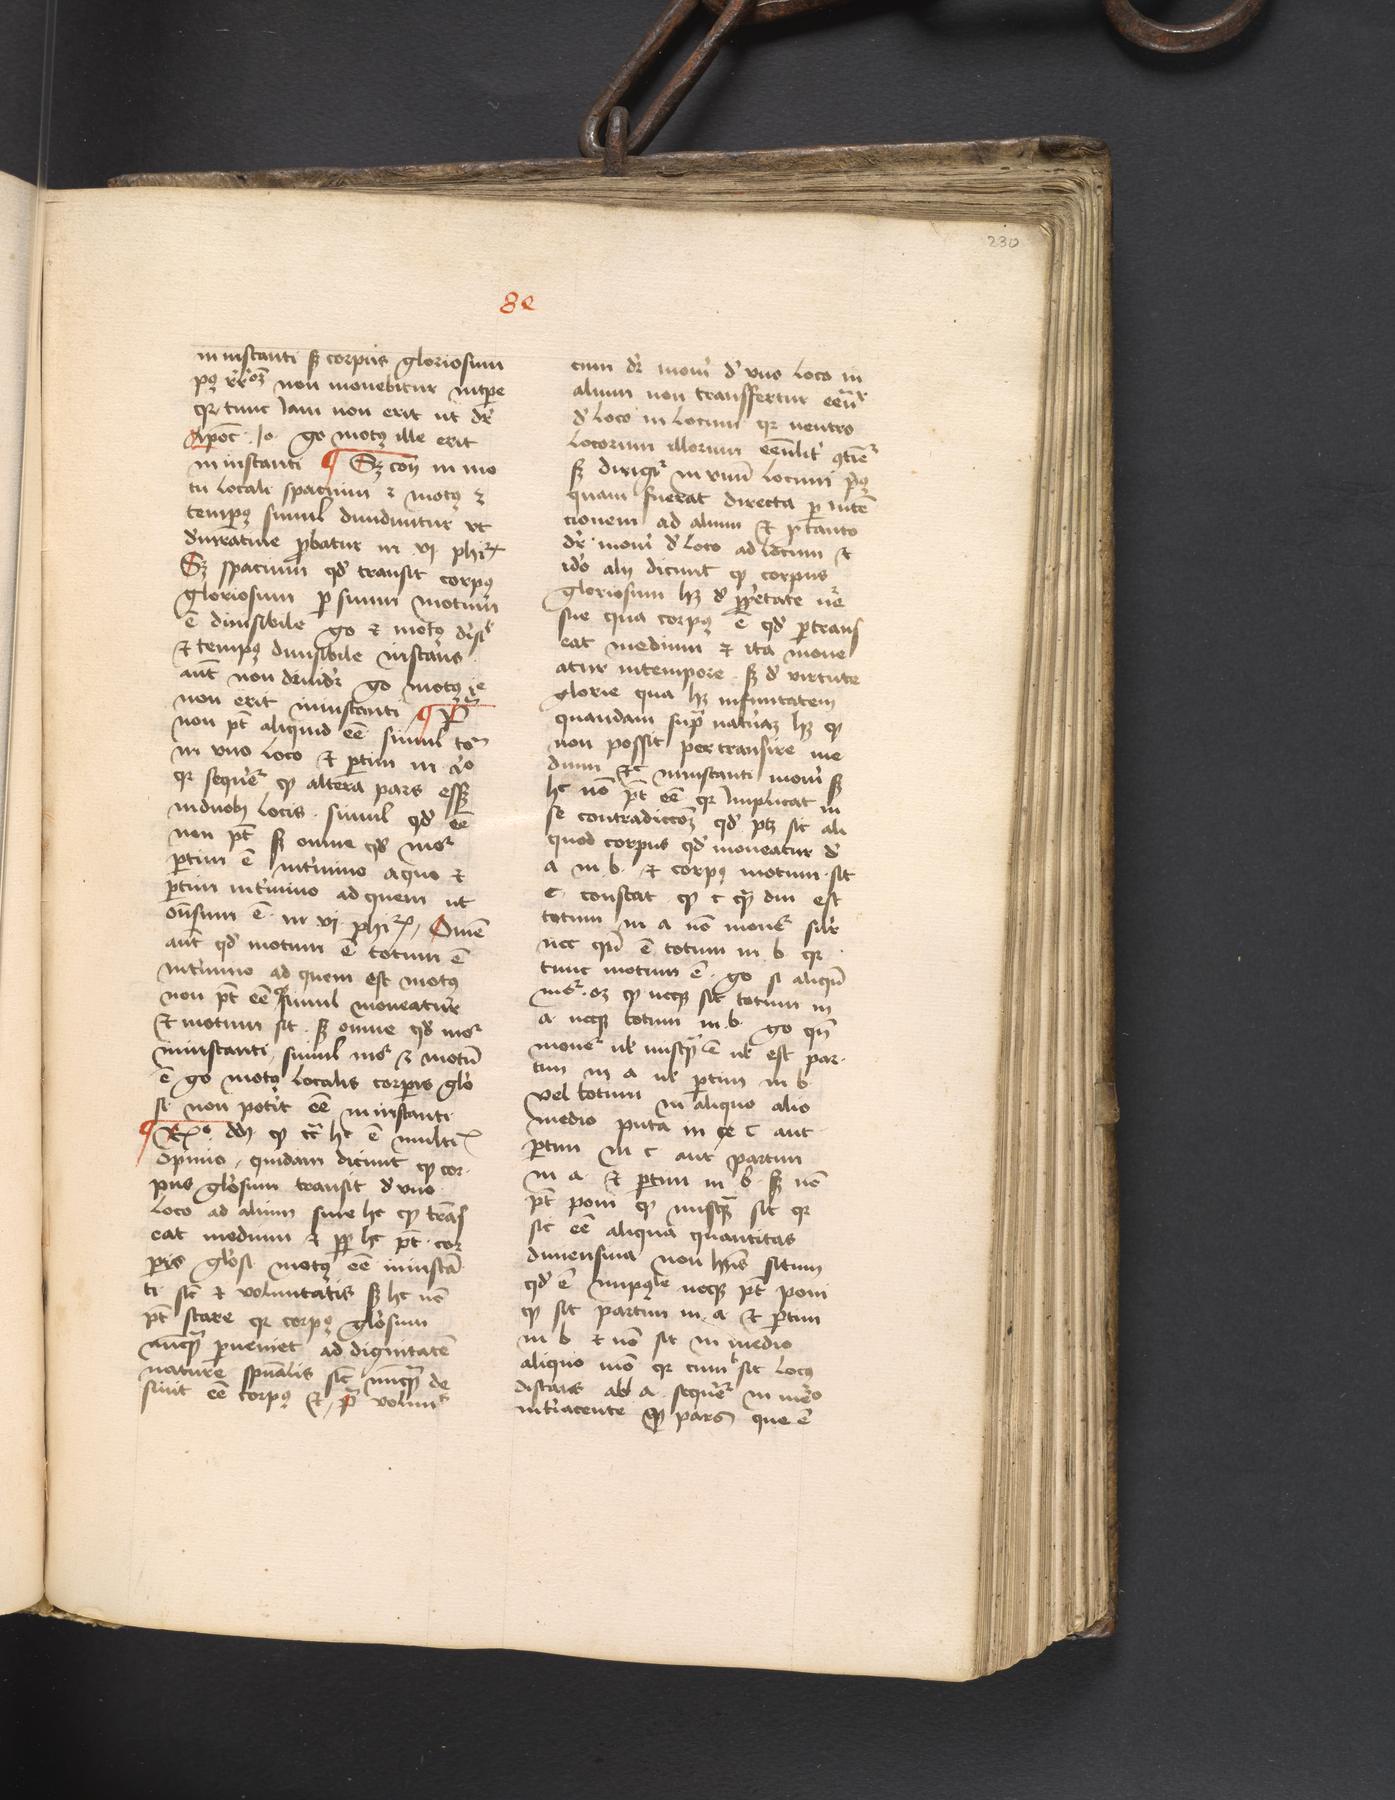 230
8e
in instanti sꝫ corpus gloriosum
pꝰ rr̄oꝫ non mouebitur intpe
qr tunc iam non erit ut dr̄
Apoc̄ . 10 . go motꝰ ille erit
in instanti ¶ Sꝫ con̄ in mo
tu locali spacium ⁊ motꝰ ⁊
tempꝰ simul diuiduntur ut
pbatur in vi phi
Sꝫ spacium qd transit corpꝰ
gloriosum p suum motum
ē diuisibile go ⁊ motꝰ
⁊ tempꝰ diuisibile instans
aut̄ non diuidr̄ go motꝰ
non erit in instanti ¶ P
non pt̄ aliquid eē simul
in vno loco ⁊ ptim in
qr sequer̄ ꝙ altera pars
induobꝫ locis . simul qd eē
non pt̄ sꝫ omne qd mor̄
ptim ē intīmino aquo ⁊
ptim intīmino ad quem ut
on̄sum ē in vi phi Omē
aut̄ qd motum ē totum ē
intīmino ad quem est motꝰ
non pt̄ eē simul moueatur
⁊ motum sit . sꝫ omne qd mor̄
in instanti simul mor̄ ⁊ motū
ē go motꝰ localis corpis glo
si non potit eē in instanti
¶ R dd ꝙ cc̄ hc ē multi
opinio . quidam dicunt ꝙ cor
pus glosum transit d vno
loco ad alium sine hc ꝙ trans
eat medium ⁊ pp hc pt̄ cor
pis glosi motꝰ eē instan
ti sic̄ ⁊ voluntatis sꝫ hc nō
pt̄ stare qr corpꝰ glosum
nunqꝫ pueniet ad dignitatē
nature spūalis sic̄ nunqꝫ de
sinit eē corpꝰ ⁊ p volun
cum dr̄ mou d vno loco in
alium non transfertur
d loco in locum qr neutro
locorum illorum
sꝫ dirigr̄ in vnū locum
quam fuerat directa p inten
cionem ad alium ⁊ p tanto
dr̄ mou d loco ad locum ⁊
ido alij dicunt ꝙ corpus
gloriosum hꝫ d pprietate nre
sue qua corpꝰ ē qd ptrans
eat medium ⁊ ita moue
atur intempore . sꝫ d virtute
glorie qua hꝫ infinitatem
quandam supra naturaꝫ hꝫ ꝙ
non possit pertransire me
dium ⁊ in instanti mou sꝫ
hc nō pt̄ eē qr implicat in
se contradiccōꝫ qd ptꝫ sit ali
quod corpus qd moueatur d
a in b . ⁊ corpꝰ motum sit
c . constat ꝙ c qm̄ diu est
totum in a nō mouer̄
nec qn̄ ē totum in b qr
tunc motum ē . go si aliqn̄
mor̄ . oꝫ ꝙ necꝫ sit totum in
a necꝫ totum in b . go qn̄
mouer̄ ul nusqꝫ ē ul est par
tim in a ul ptim in b
vel totum in aliquo alio
medio puta in c aut
ptim in c aut partim
in a ⁊ ptim in b . sꝫ nō
pt̄ poni ꝙ nusqꝫ sit qr
sic eē aliqua quantitas
dimensiua non hn̄s situm
qd ē necꝫ pt̄ poni
ꝙ sit partim in a ⁊ ptim
in b ⁊ nō sit in medio
aliquo mō qr cum b sit locꝰ
distans ab a sequer̄ in
interiacente ꝙ pars que ē